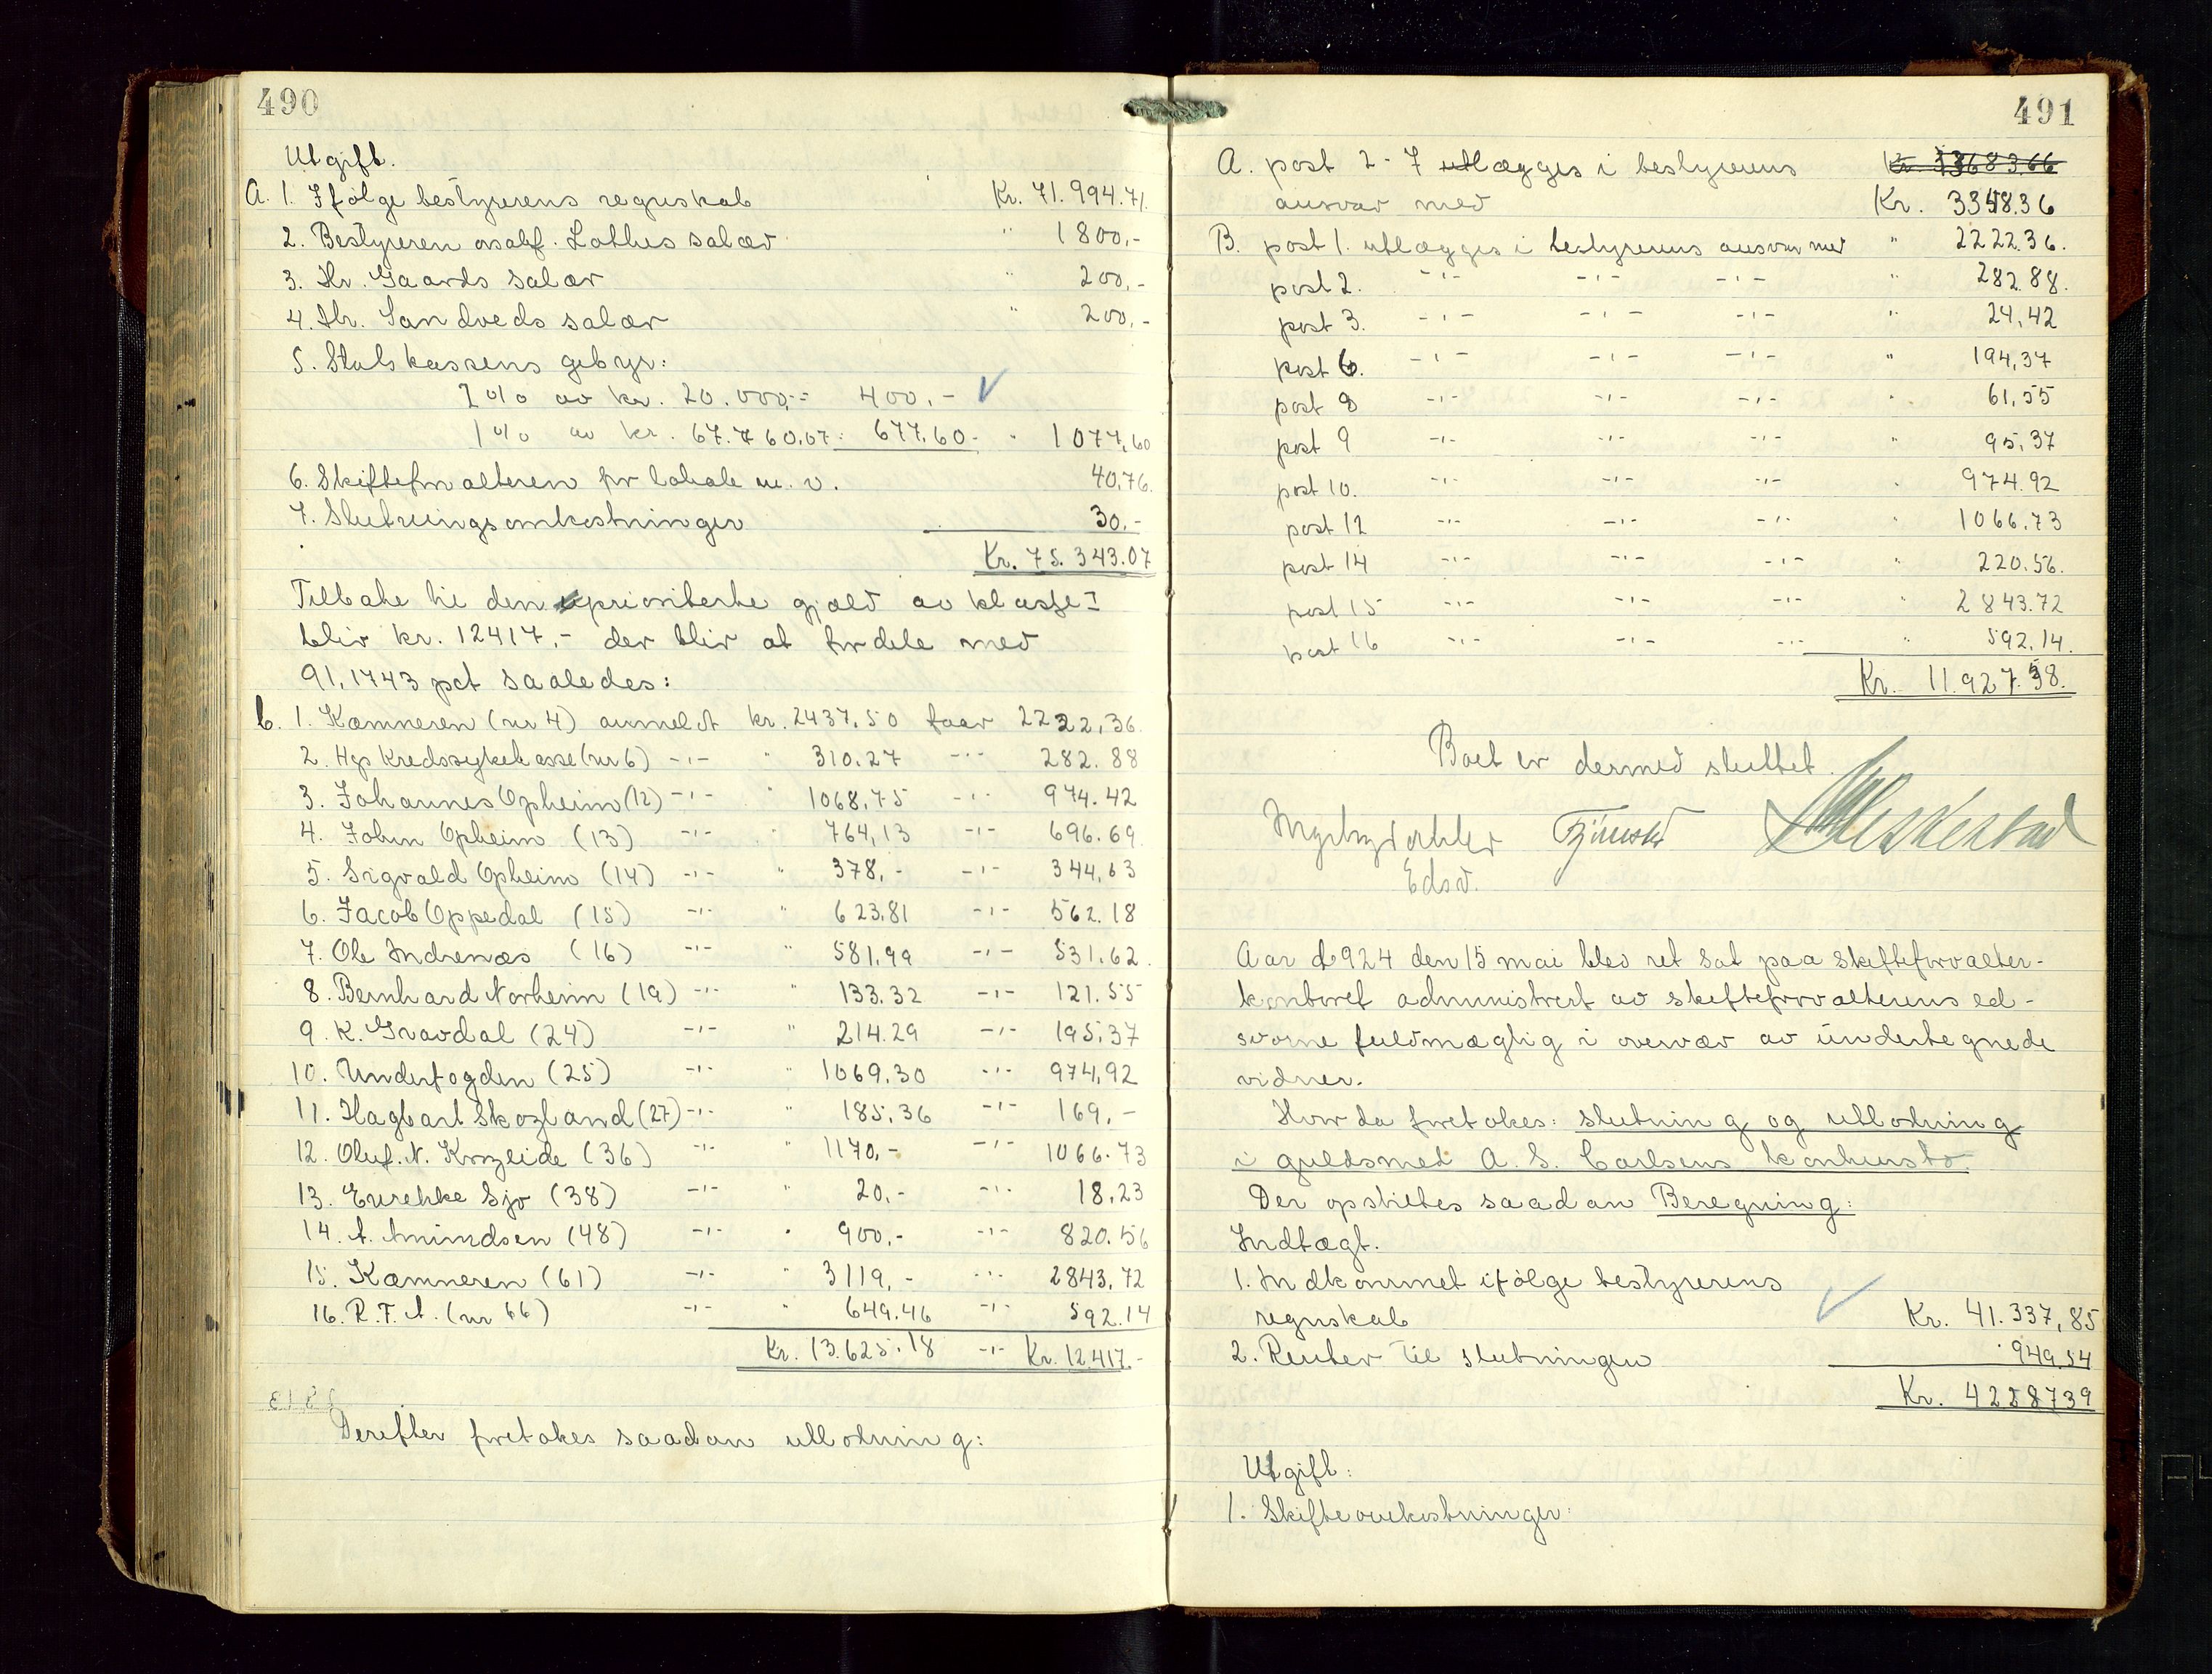 490
Utgift.
A. 1. Ifølge bestyrerens regnskab Kr. 71.994.71.
2. Bestyreren osakf. Lothes salær " 1800,-
3. Hr. Gaards salær " 200,-
4. Hr. Sandveds salær " 200,-
5. Statskassens gebyr:
2 % av kr. 20.000,-= 400,-
1 % av kr. 67.760,07= 677,60- " 1077,60
6. Skifteforvalteren for lokale m. v. 40,76.
7. Slutningsomkostninger 30,-
Kr. 75.343.07
Tilbake til den uprioriterte gjæld av klasse I
blir kr. 12417,- der blir at fordele med
91,1743 pct saaledes:
b. 1. Kæmneren (nr 4) anmeldt kr. 2437,50 faar 2222,36
2. Hgs Kredssykekasse (nr 6) -,- " 310.27 -,- 282.88
3. Johannes Opheim (12) -,- " 1068,75 -,- 974.42
4. John Opheim (13) -,- " 764,13 -,- 696.69
5. Sigvald Opheim (14) -,- " 378,- -,- 344,63
6. Jacob Oppedal (15) -,- " 623,81 -,- 562.18
7. Ole Indrenæs (16) -,- " 581,99 -,- 531,62.
8. Bernhard Norheim (19) -,- " 133.32 -,- 121.55
9. K. Gravdal (24) -,- " 214.29 -,- 195,37
10. Underfogden (25) -,- " 1069.30 -,- 974,92
11. Hagbart Skogland (27) -,- " 185,36 -,- 169,-
12. Oluf. N. Krozleide (36) -,- " 1170,- -,- 1066.73
13. Enrehke Sjo (38) -,- " 20,- -,- 18,23
14. A. Amundsen (48) -,- " 900,- -,- 820.56
15. Kæmneren (61) -,- " 3119,- -,- 2843,72
16. R. T. A. (nr 66) -,- " 649.46 -,- 592.14
Kr. 13.625.18 -,- Kr. 12.417.-
Derefter foretokes saadan utlodning:
491
A. post 2-7 utlægges i bestyrerens Kr 33683,66
ansvar med Kr. 3348.36
B. post 1. utlægges i bestyrerens ansvar med " 2222.36.
post 2. -,- -,- -,- " 282.88.
post 3. -,- -,- -,- " 24,42
post 6. -,- -,- -,- " 194,37
post 8 -,- -,- -,- " 61,55
post 9 -,- -,- -,- " 95,37
post 10. -,- -,- -,- " 974.92
post 12 -,- -,- -,- " 1066.73
post 14 -,- -,- -,- " 220.56.
post 15 -,- -,- -,- " 2843.72
post 16 -,- -,- -,- " 592,14.
Kr. 11.927.58.
Boet er dermed sluttet.
Edsv.
Aar 1924 den 15 mai blev ret sat paa skifteforvalter-
kontoret administrert av skifteforvalterens ed-
svorne fuldmægtig i overvær av undertegnede
vidner.
Hvor da foretokes: slutning og utlodning
i guldsmed A. S. Carlsens konkursbo.
Der opstilles saadan Beregning:
Indtægt.
1. Indkommet ifølge bestyrerens
regnskab Kr. 41.337,85
2. Renter til slutningen 949,54
Kr. 4228739
Utgift:
1. Skifteomkostninger: